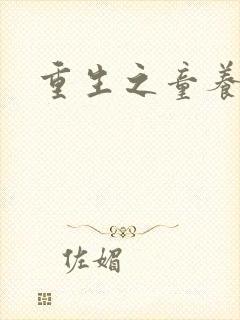 重生之童养
佐媚